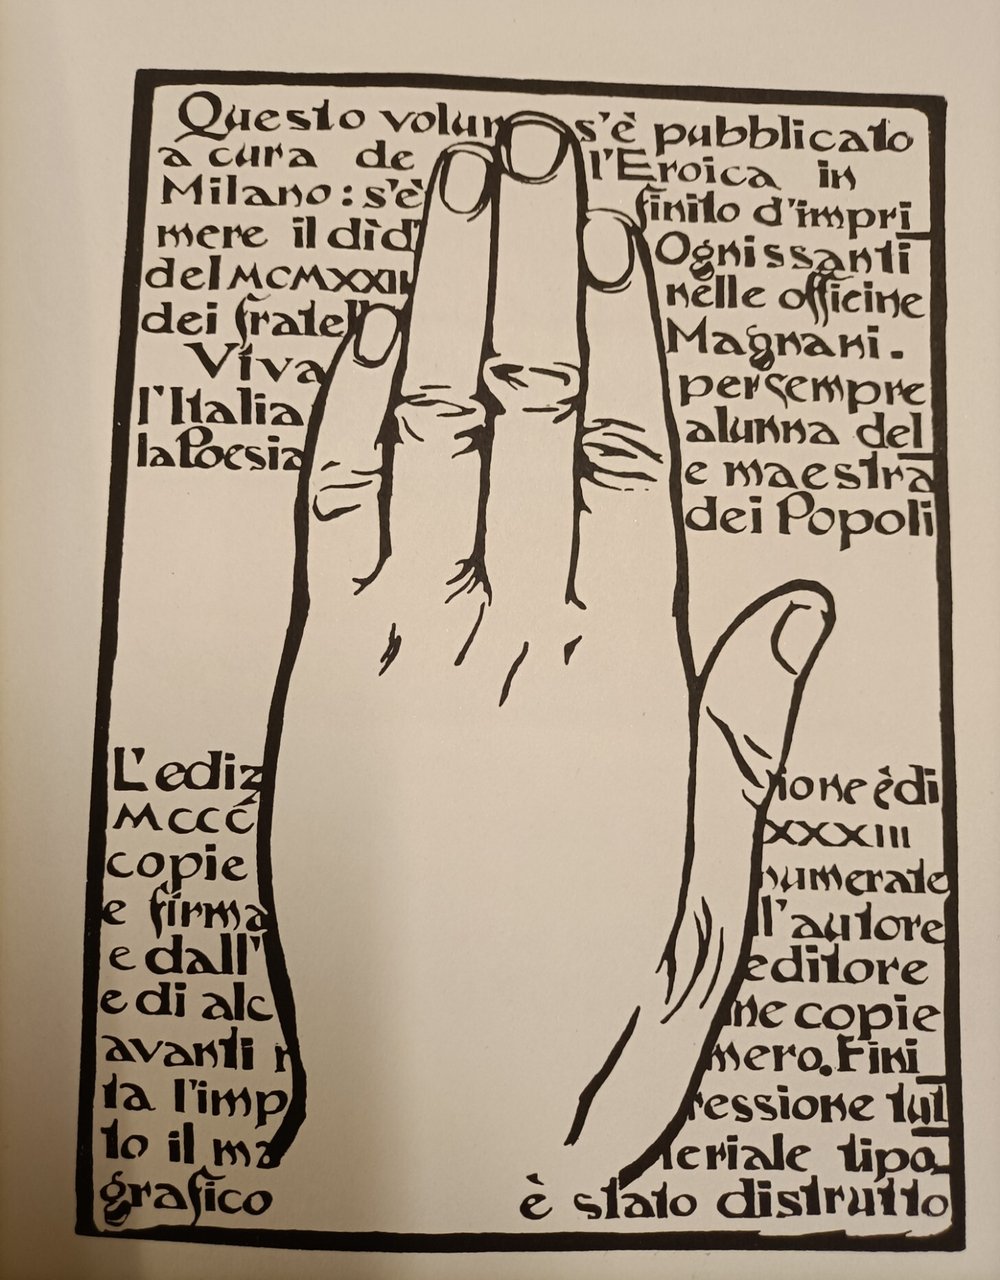 Questo volum s'è pubblicato
a cura de l'Eroica in
Milano : s'è finito d'impri
mere il dì d' Ognissanti
del MCMXXII nelle officine
dei fratell Magnani.
Viva per sempre
l'Italia alunna del
la Poesia e maestra
dei Popoli
L'ediz ione è di
MCCC XXXIII
copie numerate
e firma ll'autore
e dall' editore
e di alc ne copie
avanti n mero. Fini
ta l'imp ressione tut
to il ma teriale tipo
grafico è stato distrutto